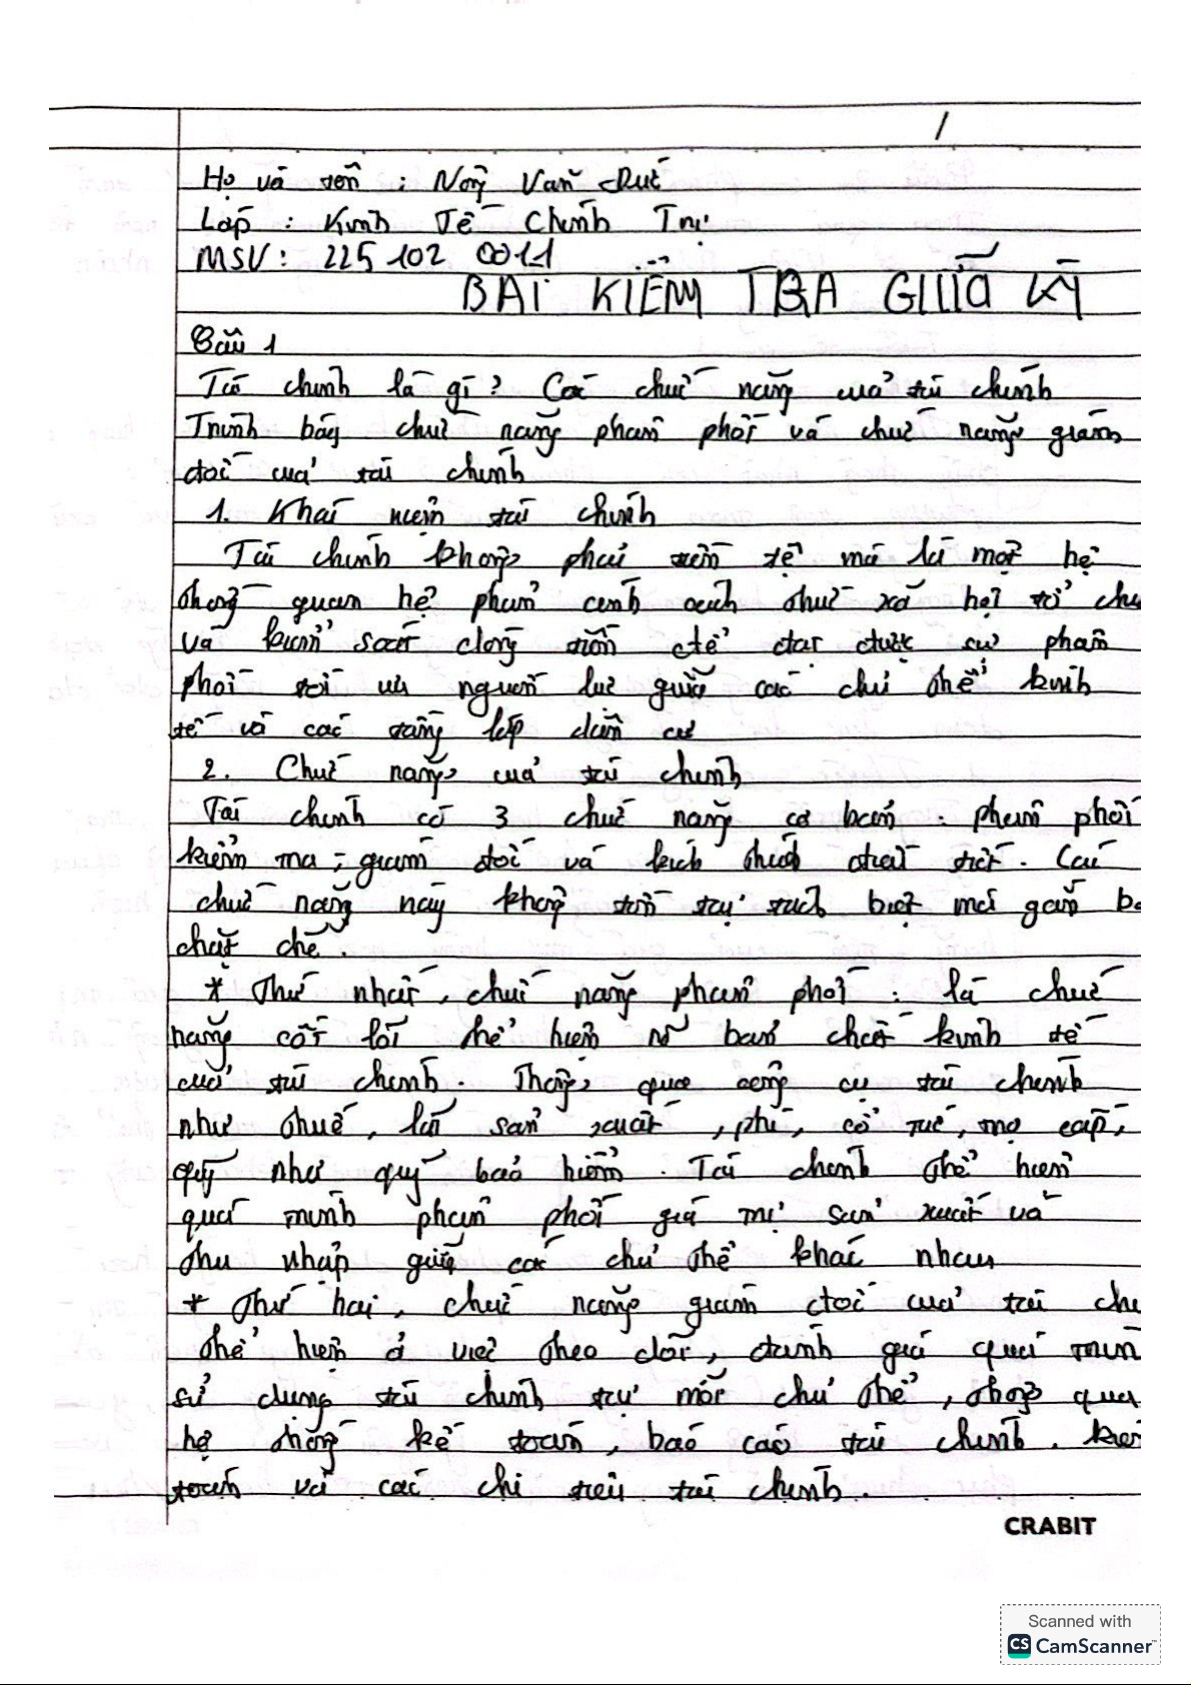 Họ và tên : Ngô Văn Đức
Lớp : Kinh Tế Chính Trị
MSV : 225 102 0011
BÀI KIỂM TRA GIỮA KỲ
Câu 1
Tài chính là gì? Các chức năng của tài chính
Trình bày chức năng phân phối và chức năng giám
đốc của tài chính
1. Khái niệm tài chính
Tài chính không phải tiền tệ mà là một hệ
thống quan hệ phản ánh cách thức xã hội tổ chứ
và kiểm soát dòng tiền để đạt được sự phân
phối tối ưu nguồn lực giữa các chủ thể kinh
tế và các tầng lớp dân cư
2. Chức năng của tài chính
Tài chính có 3 chức năng cơ bản : phân phối
kiểm tra, giám đốc và kích thích Các
chức năng này không tồn tại tách biệt mà gắn bó
chặt chẽ.
* Thứ nhất, chức năng phân phối : là chức
năng cốt lõi thể hiện rõ bản chất kinh tế
của tài chính. Thông qua công cụ tài chính
như thuế, lãi sản xuất, phí, cổ tức, trợ cấp,
quỹ như quỹ bảo hiểm. Tài chính thể hiện
quá trình phân phối giá trị sản xuất và
thu nhập giữa các chủ thể khác nhau
* Thứ hai, chức năng giám đốc của tài chí
thể hiện ở việc theo dõi, đánh giá quá trình
sử dụng tài chính tại mỗi chủ thể, thông qua
hệ thống kế toán, báo cáo tài chính. kiểm
toán và các chỉ tiêu tài chính.
CRABIT
Scanned with
CS CamScanner